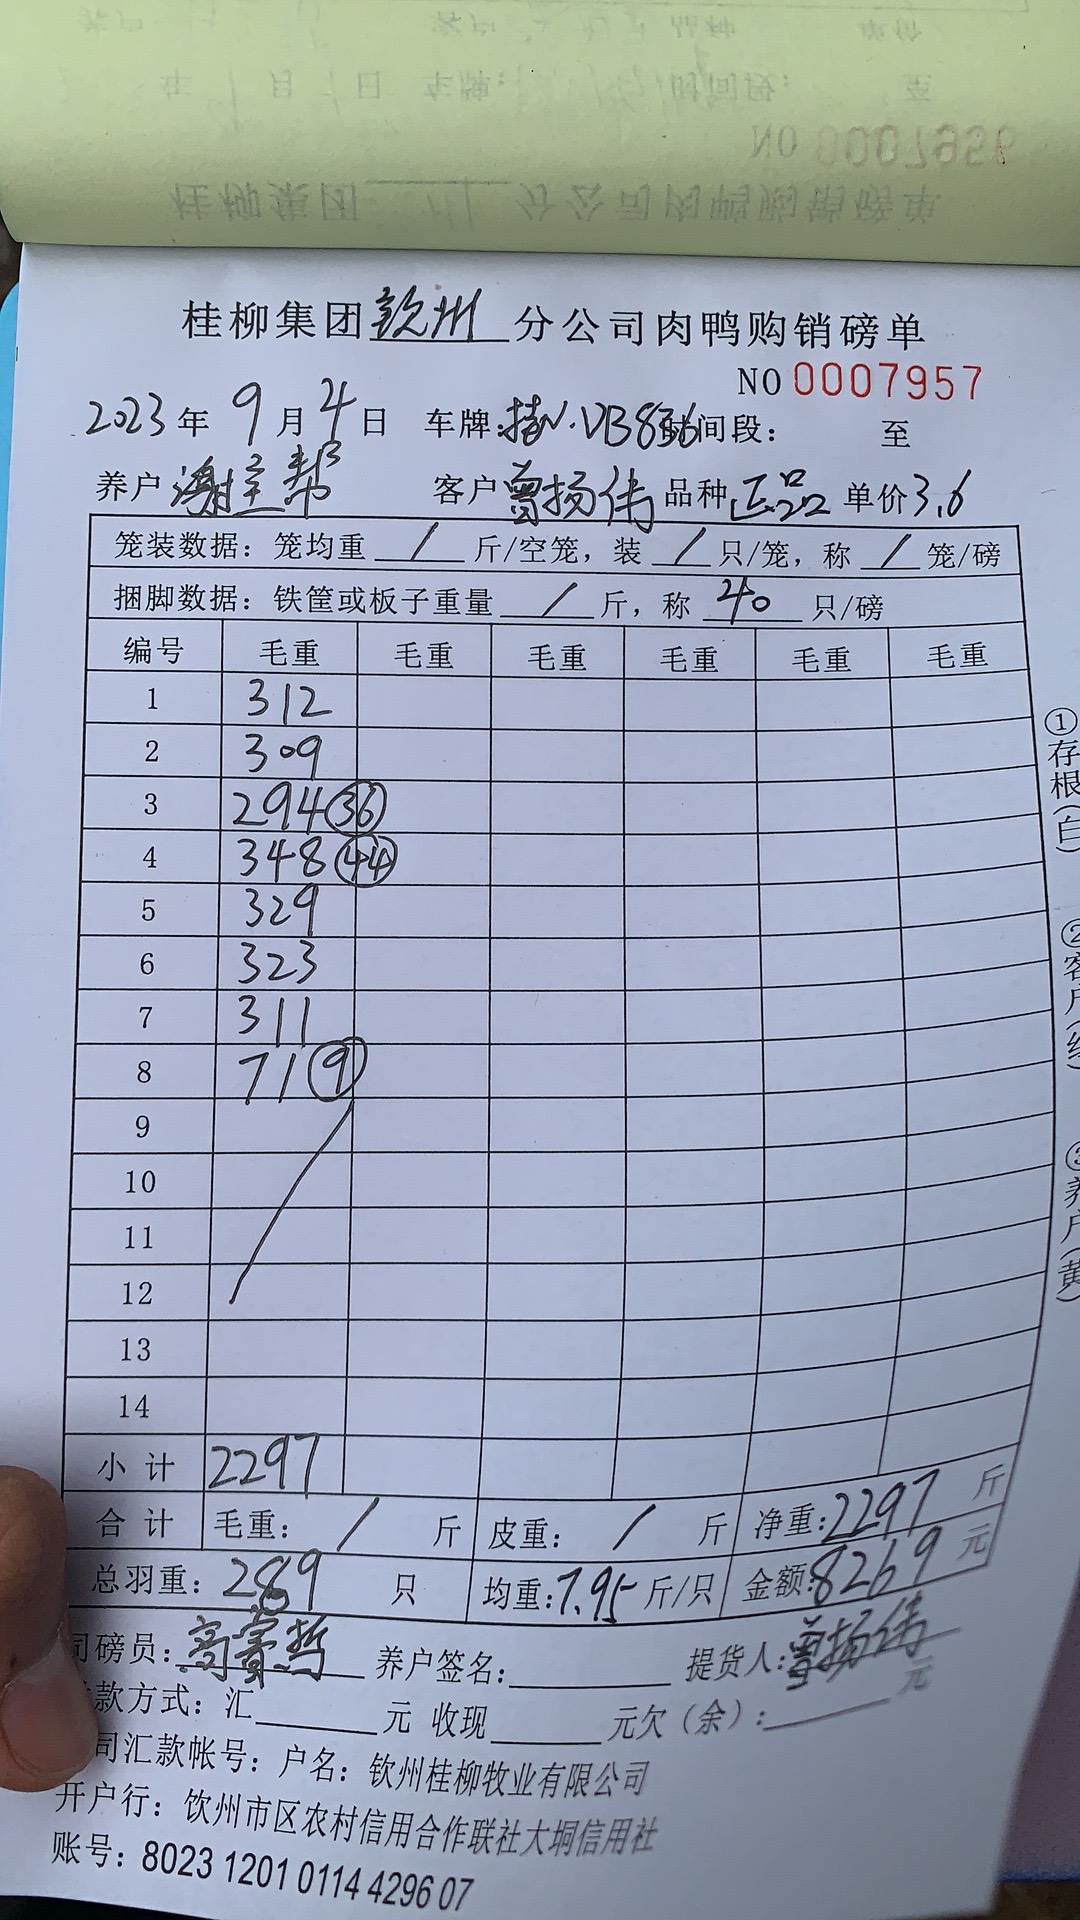 桂柳集团钦州分公司肉鸭购销磅单
NO 0007957
2023年 9月 4日 车牌:桂N·VB856 时间段: 至
养户 谢主帮 客户 曾扬伟 品种 正品 单价 3.6
笼装数据:笼均重 / 斤/空笼,装 / 只/笼,称 / 笼/磅
捆脚数据:铁筐或板子重量 / 斤,称 40 只/磅
编号 毛重 毛重 毛重 毛重 毛重 毛重
1 312
2 309
3 294 36
4 348 44
5 329
6 323
7 311
8 71 9
9
10
11
12
13
14
小计 2297
合计 毛重: / 斤 皮重: / 斤 净重:2297 斤
总羽重:289 只 均重:7.95 斤/只 金额:8269 元
司磅员: 养户签名: 提货人:曾扬伟
款方式:汇 元 收现 元欠(余): 元
司汇款帐号:户名:钦州桂柳牧业有限公司
开户行:钦州市区农村信用合作联社大垌信用社
账号:8023 1201 0114 4296 07
①存根(白)
②客户(红)
③养户(黄)